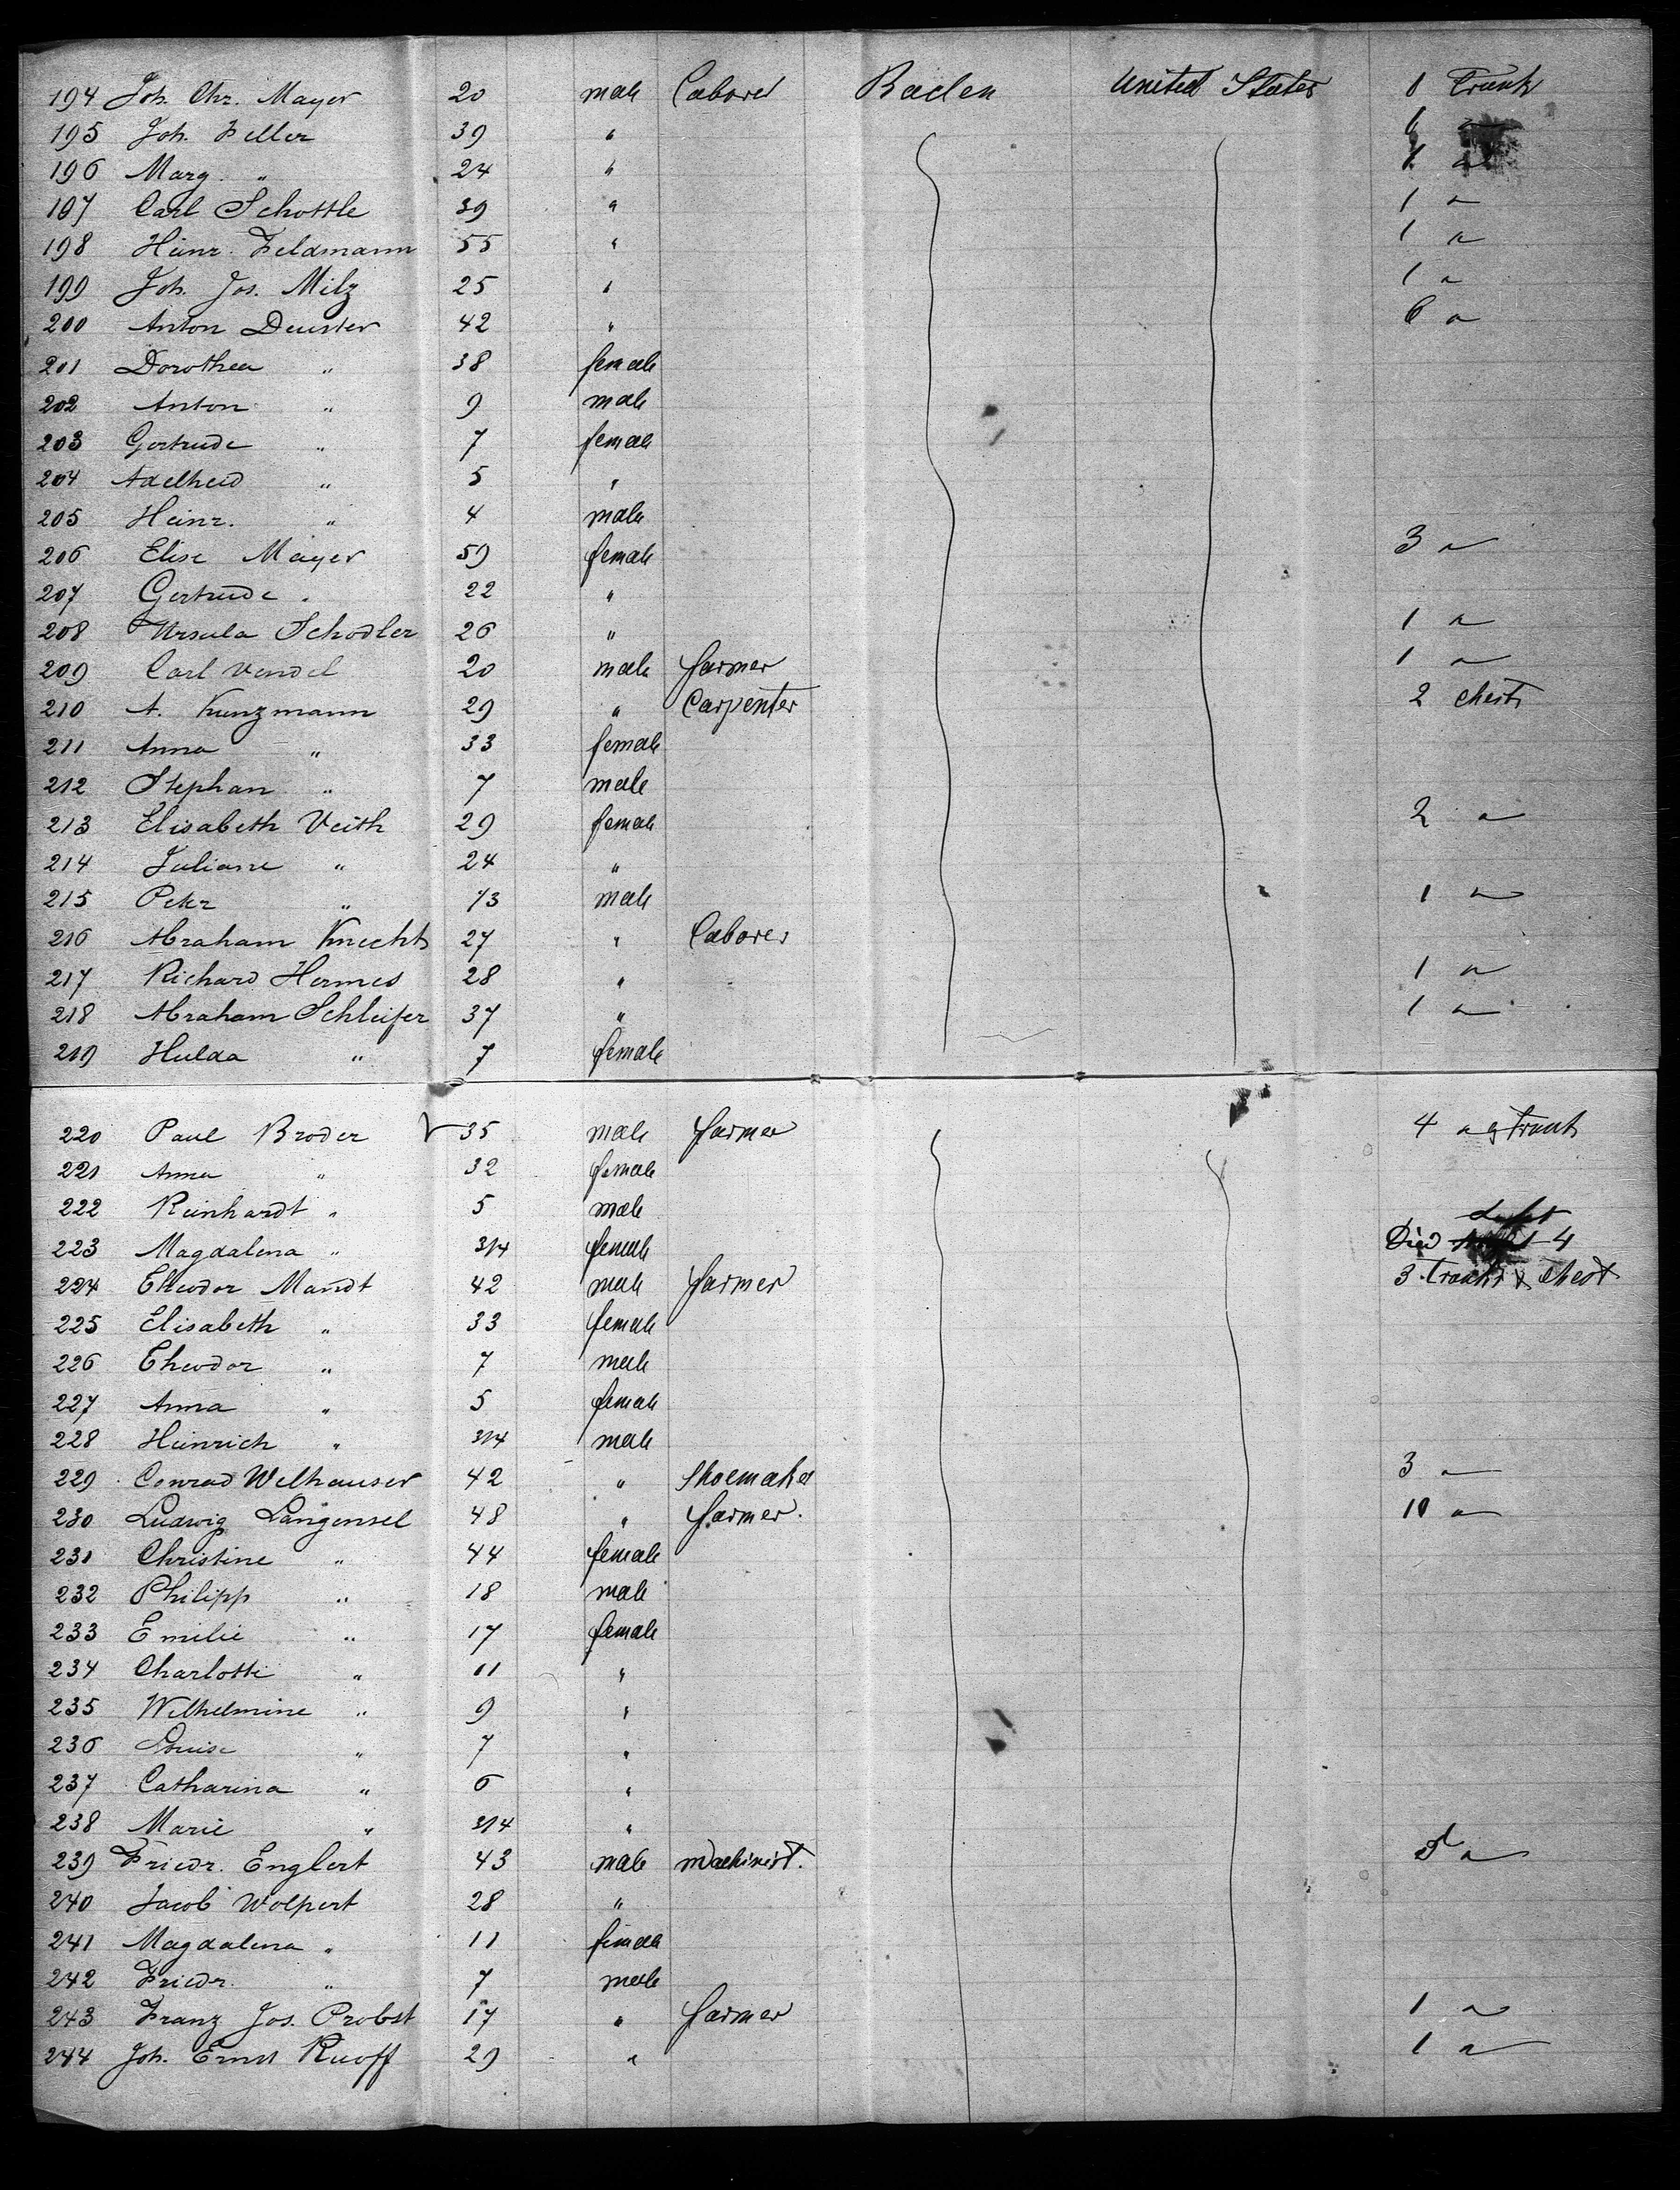 194 Joh. Chr. Mayer 20 male Laborer Baden United States 1 Trunk
195 Joh. Feller 39 " 1 "
196 Marg. " 24 " 1 "
197 Carl Schottle 39 " 1 "
198 Heinr. Feldmann 55 " 1 "
199 Joh. Jos. Milz 25 " 1 "
200 Anton Deuster 42 " 6 "
201 Dorothea " 38 female
202 Anton " 9 male
203 Gertrude " 7 female
204 Adelheid " 5 "
205 Heinr. " 4 male
206 Elise Mayer 59 female 3 "
207 Gertrude " 22 "
208 Ursula Schodler 26 " 1 "
209 Carl Vendel 20 male farmer 1 "
210 A. Kunzmann 29 " Carpenter 2 Chests
211 Anna " 33 female
212 Stephan " 7 male
213 Elisabeth Veith 29 female 2 "
214 Juliane " 24 "
215 Peter " 13 male 1 "
216 Abraham Knecht 27 " Laborer
217 Richard Hermes 28 " 1 "
218 Abraham Schleifer 37 " 1 "
219 Hulda " 7 female
220 Paul Broder 35 male farmer 4 " Trunk
221 Anna " 32 female
222 Reinhardt " 5 male
223 Magdalena " 3/4 female Died 4
224 Theodor Mandt 42 male farmer 3 Trunks & Chest
225 Elisabeth " 33 female
226 Theodor " 7 male
227 Anna " 5 female
228 Heinrich " 3/4 male
229 Conrad Welhauser 42 " Shoemaker 3 "
230 Ludwig Langensel 48 " farmer. 10 "
231 Christine " 44 female
232 Philipp " 18 male
233 Emilie " 17 female
234 Charlotte " 11 "
235 Wilhelmine " 9 "
236 Louise " 7 "
237 Catharina " 6 "
238 Marie " 3/4 "
239 Friedr. Englert 43 male Machinist. "
240 Jacob Wolpert 28 "
241 Magdalena " 11 female
242 Friedr. " 7 male
243 Franz Jos. Probst 17 " farmer 1 "
244 Joh. Ernst Ruoff 29 " 1 "